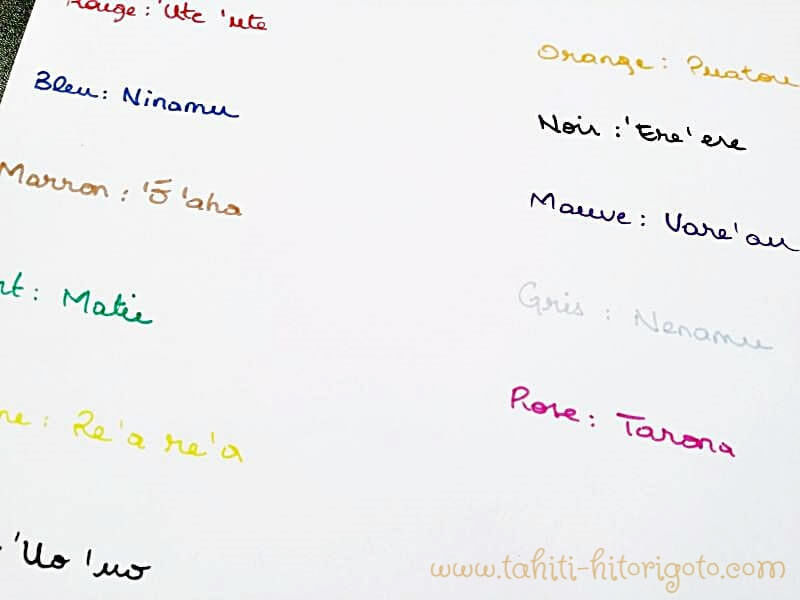 Rouge : 'Ute 'ute
Bleu : Ninamu
Marron : 'Ō 'aha
rt : Matie
ne : Re'a re'a
: 'Uo 'uo
Orange : Puatou
Noir : 'Ere' ere
Mauve : Vare'au
Gris : Nenamu
Rose : Tarona
www.tahiti-hitorigoto.com